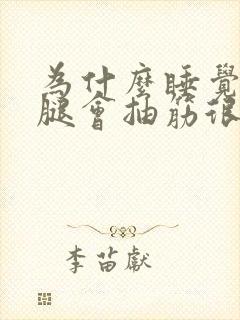 為什麼睡覺
腿會抽筋很
李苗獻